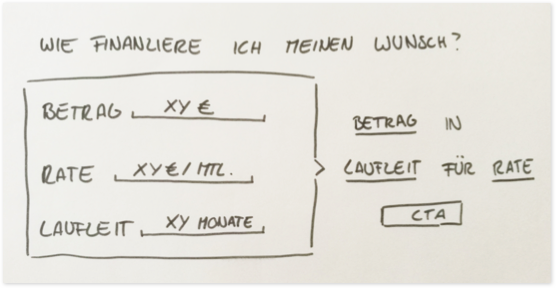 WIE FINANZIERE ICH MEINEN WUNSCH?
BETRAG XY €
RATE XY € / MTL.
LAUFZEIT XY MONATE
BETRAG IN
LAUFZEIT FÜR RATE
CTA